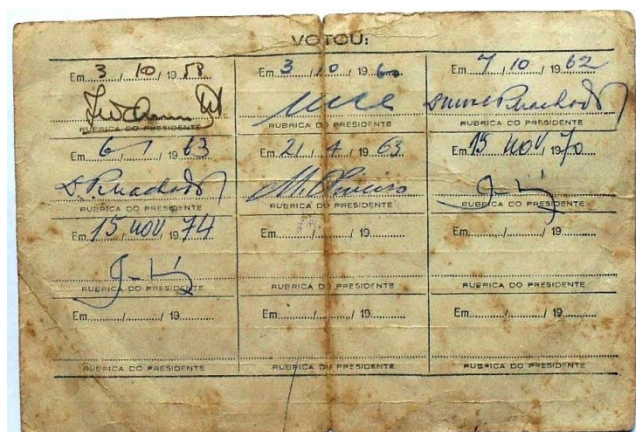 VOTOU:
Em 3 / 10 / 19 58 Em 3 / 10 / 19 60 Em 7 / 10 / 19 62
RUBRICA DO PRESIDENTE RUBRICA DO PRESIDENTE RUBRICA DO PRESIDENTE
Em 6 / 1 / 19 63 Em 21 / 4 / 19 63 Em 15 / NOV / 19 70
RUBRICA DO PRESIDENTE RUBRICA DO PRESIDENTE RUBRICA DO PRESIDENTE
Em 15 / NOV / 19 74 Em / / 19 Em / / 19
RUBRICA DO PRESIDENTE RUBRICA DO PRESIDENTE RUBRICA DO PRESIDENTE
Em / / 19 Em / / 19 Em / / 19
RUBRICA DO PRESIDENTE RUBRICA DO PRESIDENTE RUBRICA DO PRESIDENTE